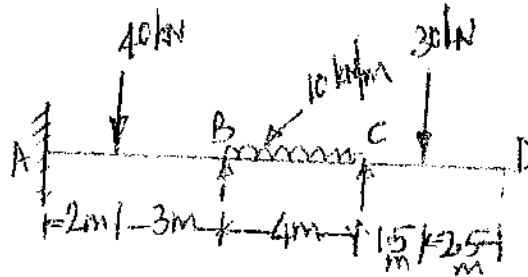 40kN
30kN
10 kN/m
A
B
C
D
2m
3m
4m
1.5 m
2.5 m